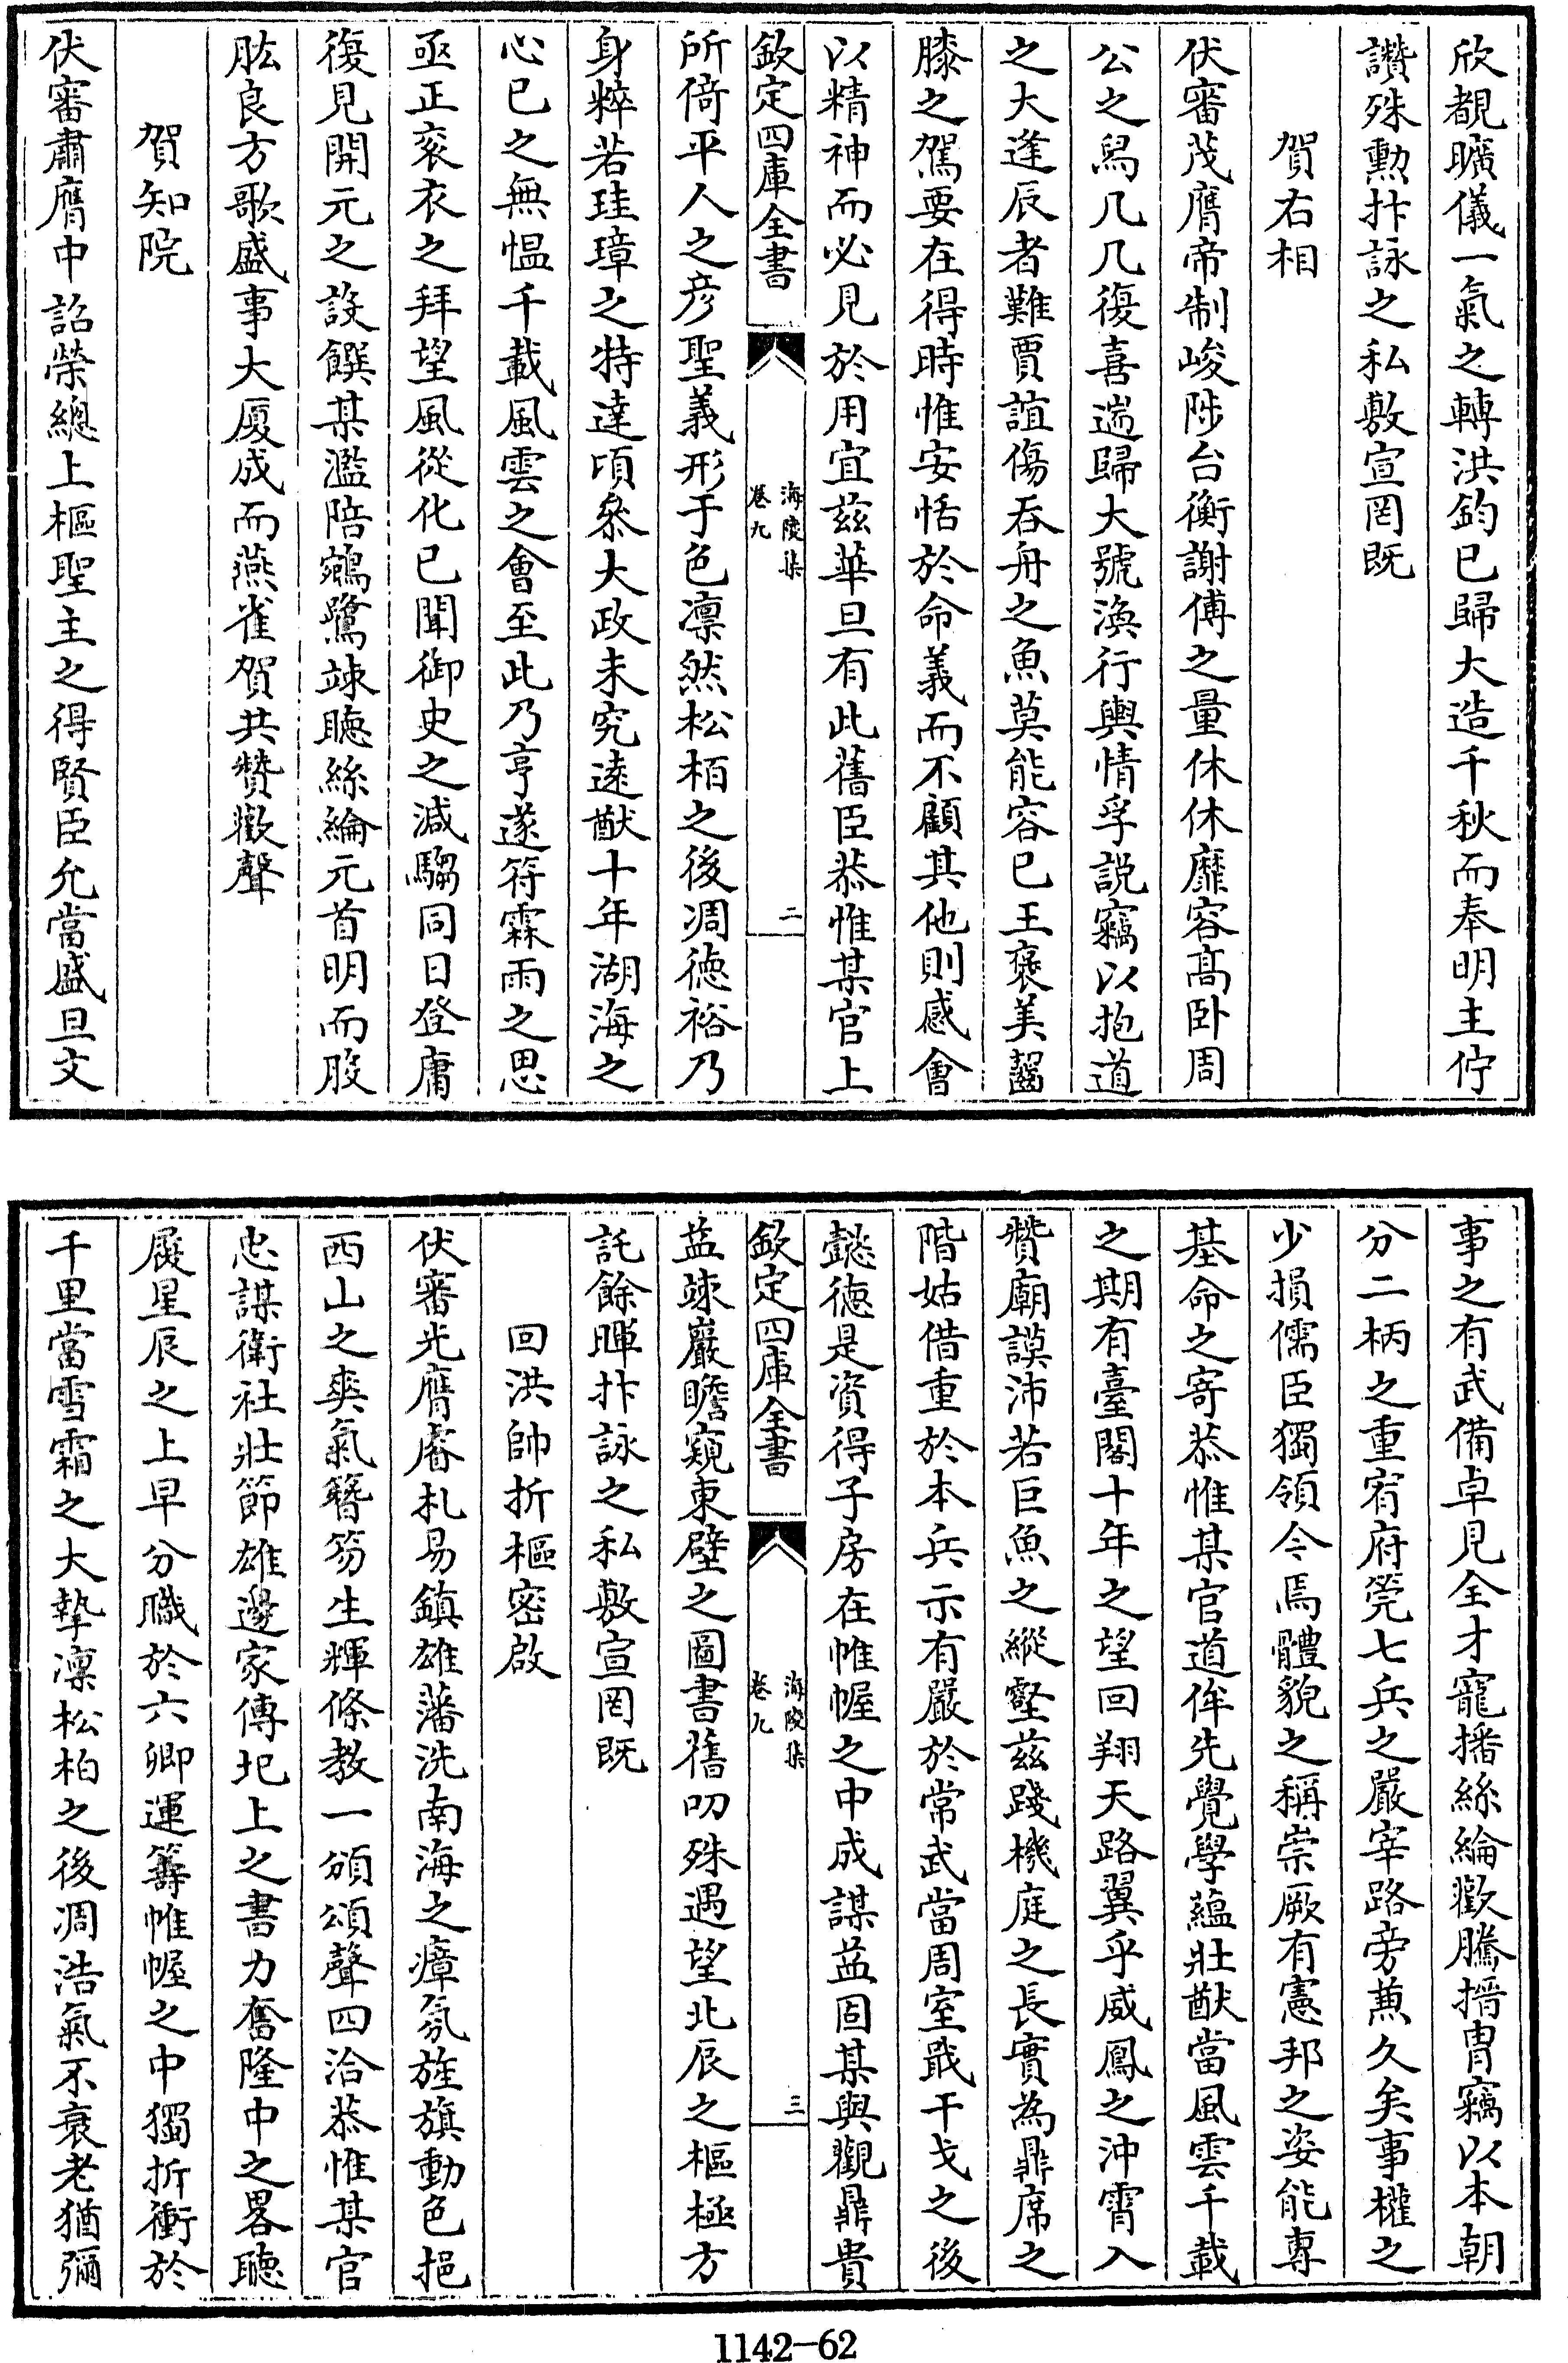 欣覩曠儀一氣之轉洪鈞已歸大造千秋而奉明主佇
讚殊勲抃詠之私敷宣罔既
賀右相
伏審茂膺帝制峻陟台衡謝傅之量休休靡容髙卧周
公之舄几几復喜遄歸大號渙行輿情孚説竊以抱道
之大逢辰者難賈誼傷吞舟之魚莫能容已王褒美齧
膝之駕要在得時惟安恬於命義而不顧其他則感會
以精神而必見於用宜兹華旦有此舊臣恭惟某官上
欽定四庫全書
海陵集
卷九
二
所倚平人之彦聖義形于色凛然松栢之後凋徳裕乃
身粹若珪璋之特達頃叅大政未究逺猷十年湖海之
心已之無愠千載風雲之會至此乃亨遂符霖雨之思
亟正衮衣之拜望風從化已聞御史之減騶同日登庸
復見開元之設饌某濫陪鵷鷺竦聽絲綸元首明而股
肱良方歌盛事大厦成而燕雀賀共贊歡聲
賀知院
伏審肅膺中詔榮總上樞聖主之得賢臣允當盛旦文
事之有武備卓見全才寵播絲綸歡騰搢胄竊以本朝
分二柄之重宥府筦七兵之嚴宰路旁兼久矣事權之
少損儒臣獨領今焉體貌之稱崇厥有憲邦之姿能專
基命之寄恭惟某官道侔先覺學蘊壯猷當風雲千載
之期有臺閣十年之望回翔天路翼乎威鳳之沖霄入
贊廟謨沛若巨魚之縱壑兹踐機庭之長實為鼎席之
階姑借重於本兵示有嚴於常武當周室戢干戈之後
懿徳是資得子房在帷幄之中成謀益固某與觀鼎貴
欽定四庫全書
海陵集
卷九
三
益竦巖瞻窺東壁之圖書舊叨殊遇望北辰之樞極方
託餘暉抃詠之私敷宣罔既
回洪帥折樞密啟
伏審光膺睿札易鎮雄藩洗南海之瘴氛旌旗動色挹
西山之爽氣簪笏生輝條教一頒頌聲四洽恭惟某官
忠謀衛社壯節雄邊家傳圯上之書力奮隆中之畧聽
履星辰之上早分職於六卿運籌帷幄之中獨折衝於
千里當雪霜之大摯凛松柏之後凋浩氣不衰老猶彌
1142-62